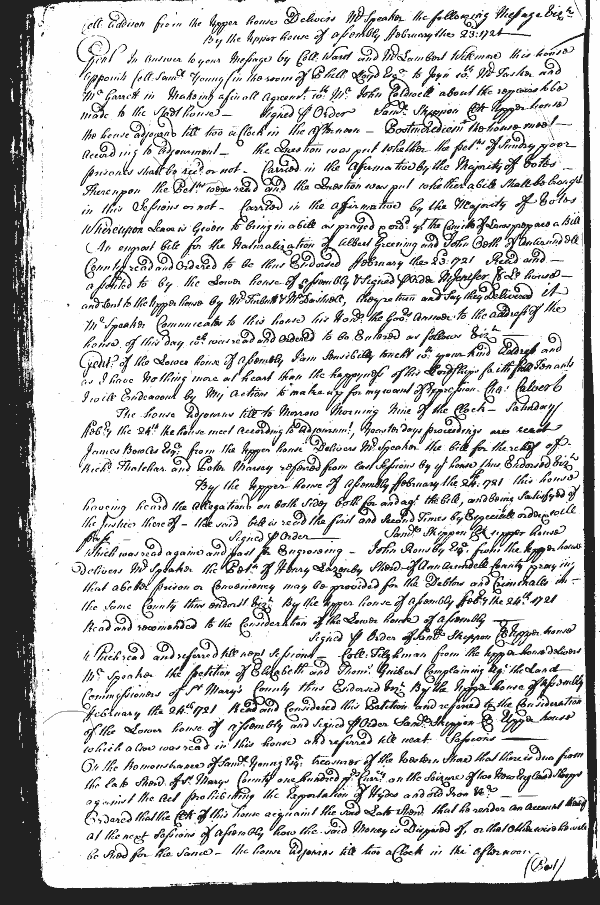 Coll. Addison from the Upper house Delivers Mr Speaker the following Message Vizt
By the Upper house of Assembly February the 23. 1721
Gentn In Answer to your Message by Coll. Ward and Mr Lambert Wilkmore this house
appoints Coll. Saml. Young in the room of Phill Loyd Esqr to Joyn wth Mr Tasker and
Mr Garrett in Making a final Agreemt. wth Mr John Caldwell about the repairs to be
made to the Stadthouse — Signed p Order Saml. Skippon Clk upper house
the house adjourns till two a Clock in the afternoon — Postmeridiem the house meet —
According to Adjournment — the Question was put whether the petns of sundry poor
persons shall be recd. or not - Carried in the affirmative by the Majority of Votes
Thereupon the Petns were read and the Question was put whether a bill shall be brought
in this Sessions or not - Carried in the affirmative by the Majority of Votes
Whereupon Leave is Given to bring in a bill as prayed Ordrd. yt the Comittee of Laws prepare a Bill
An engrost bill for the Naturalization of Albert Greening and John Oeth of Annarundell
County read and Ordered to be thus Endorsed February the 23. 1721 Read and —
assented to by the Lower house of Assembly & Signed p Order MJenifer Cl. Lo. house —
and sent to the Upper house by Mr &  Mr Dashiell, they return and Say they Delivered it
Mr Speaker Communicates to this house his Honrs. the Govrs. Answer to the address of the
house of this day wch was read and ordered to be Entered as follows Vizt
Gentn. of the Lower house of Assembly I am sensibly toucht wth your kind Address and
as I have Nothing more at heart than the happyness of his Lordships faithfull Tenants
I will Endeavour by My Actions to make up for my want of Expression. Cha: Calvert
The house Adjourns till to Morrow Morning Nine of the Clock — Saturday
Feb: y the 24th the house meet According to Adjournmt., Yesterdays proceedings are read
James Bowles Esqr. from the Upper house Delivers Mr Speaker the bill for the relief of
Richd. Thatcher and Peter Marsay referred from last Sessions by ys house thus Endorsed Vizt
By the Upper house of Assembly February the 24. 1721 this house
having heard the Allegations on both Sides both for and agt. the bill, and being Satisfyed of
the Justice thereof — the said bill is read the first and Second Times by Especiall order & will
pass — Signed p Order — Saml. Skippon Clk upper house
which was read againe and past for Engrossing — John Rousby Esqr. from the Upper house
Delivers Mr Speaker the Petn. of Henry Lazenby Sherd. of Ann Arundell County praying
that a better prison or Conveniency may be provided for the Debtors and Criminalls in —
the same County thus endorst Vizt. By the Upper house of Assembly Feb: y the 24th. 1721
Read and recomended to the Consideration of the Lower house of Assembly —
Signed p Order Saml. Skippon Cl Upper house
which read and referred till next Sessions — Coll. Tilghman from the Upper house delivers
Mr Speaker the petition of Elizabeth and Thoms. Guibert Complaining agt. the Land
Commissioners of St. Mary's County thus Endorsed Vizt. By the Upper house of Assembly
February the 24th 1721 Read and Considered this Petition and referred to the Consideration
of the Lower house of Assembly and Signed p Order Saml. Skippon Cl Upper house
which also was read in this house and referred till next Sessions —
On the Remonstrance of Saml. Young Esqr. treasurer of the Western Shoar that there is due from
the late Sherd. of St. Marys County one hundred on the Seizure of two New England Sloops
against the Act prohibiting the Exportation of Hydes and old Iron &c —
Ordered that the Clk of this house acquaint the said Late Sherd. that he render an Account thereof
at the next Sessions of Assembly how the said Money is Disposed of, or that otherwise he will
be Sued for the Same — the house adjourns till two a Clock in the afternoon.
(Post)